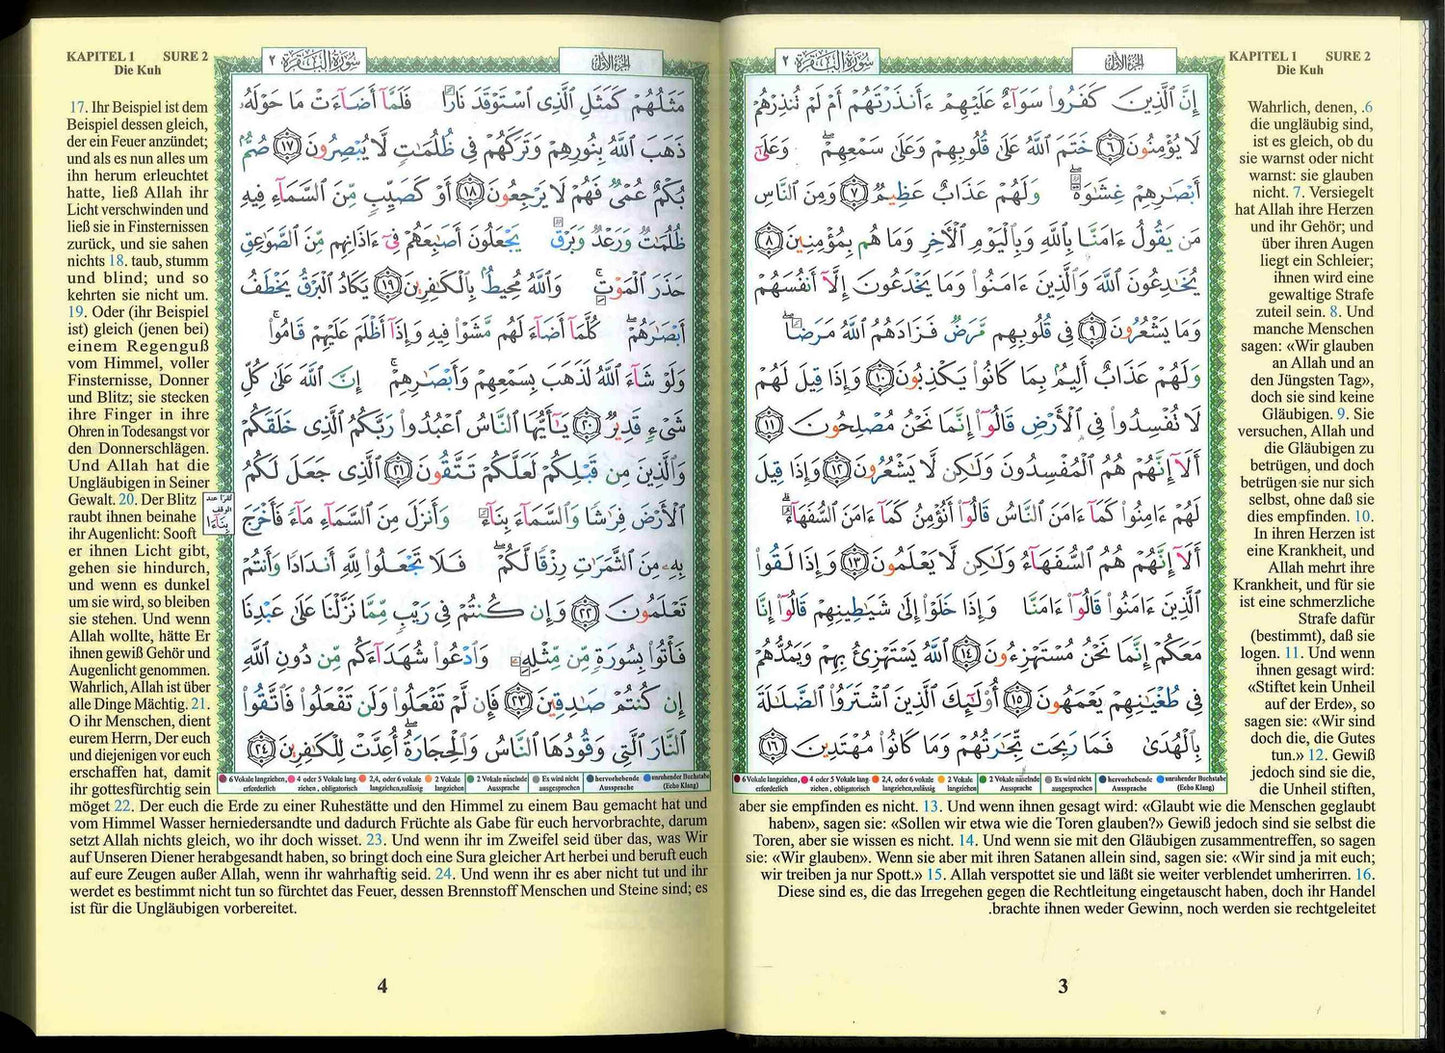 KAPITEL 1 SURE 2
Die Kuh
سورة البقرة ٢
الجزء الأول
إِنَّ الَّذِينَ كَفَرُوا سَوَاءٌ عَلَيْهِمْ ءَأَنذَرْتَهُمْ أَمْ لَمْ تُنذِرْهُمْ
لَا يُؤْمِنُونَ ٦ خَتَمَ اللَّهُ عَلَىٰ قُلُوبِهِمْ وَعَلَىٰ سَمْعِهِمْ ۖ وَعَلَىٰ
أَبْصَٰرِهِمْ غِشَٰوَةٌ ۖ وَلَهُمْ عَذَابٌ عَظِيمٌ ٧ وَمِنَ النَّاسِ
مَن يَقُولُ ءَامَنَّا بِاللَّهِ وَبِالْيَوْمِ الْءَاخِرِ وَمَا هُم بِمُؤْمِنِينَ ٨
يُخَٰدِعُونَ اللَّهَ وَالَّذِينَ ءَامَنُوا وَمَا يَخْدَعُونَ إِلَّا أَنفُسَهُمْ
وَمَا يَشْعُرُونَ ٩ فِي قُلُوبِهِم مَّرَضٌ فَزَادَهُمُ اللَّهُ مَرَضًا ۖ
وَلَهُمْ عَذَابٌ أَلِيمٌ بِمَا كَانُوا يَكْذِبُونَ ١٠ وَإِذَا قِيلَ لَهُمْ
لَا تُفْسِدُوا فِي الْأَرْضِ قَالُوا إِنَّمَا نَحْنُ مُصْلِحُونَ ١١
أَلَا إِنَّهُمْ هُمُ الْمُفْسِدُونَ وَلَٰكِن لَّا يَشْعُرُونَ ١٢ وَإِذَا قِيلَ
لَهُمْ ءَامِنُوا كَمَا ءَامَنَ النَّاسُ قَالُوا أَنُؤْمِنُ كَمَا ءَامَنَ السُّفَهَاءُ ۗ
أَلَا إِنَّهُمْ هُمُ السُّفَهَاءُ وَلَٰكِن لَّا يَعْلَمُونَ ١٣ وَإِذَا لَقُوا
الَّذِينَ ءَامَنُوا قَالُوا ءَامَنَّا وَإِذَا خَلَوْا إِلَىٰ شَيَٰطِينِهِمْ قَالُوا إِنَّا
مَعَكُمْ إِنَّمَا نَحْنُ مُسْتَهْزِءُونَ ١٤ اللَّهُ يَسْتَهْزِئُ بِهِمْ وَيَمُدُّهُمْ
فِي طُغْيَٰنِهِمْ يَعْمَهُونَ ١٥ أُولَٰئِكَ الَّذِينَ اشْتَرَوُا الضَّلَٰلَةَ
بِالْهُدَىٰ فَمَا رَبِحَت تِّجَٰرَتُهُمْ وَمَا كَانُوا مُهْتَدِينَ ١٦
6 Vokale langziehen, erforderlich
4 oder 5 Vokale lang ziehen , obligatorisch
2,4, oder 6 vokale langziehen,zulässig
2 Vokale langziehen
2 Vokale näselnde Aussprache
Es wird nicht ausgesprochen
hervorhebende Aussprache
unruhender Buchstabe (Echo Klang)
Wahrlich, denen, .6
die ungläubig sind,
ist es gleich, ob du
sie warnst oder nicht
warnst: sie glauben
nicht. 7. Versiegelt
hat Allah ihre Herzen
und ihr Gehör; und
über ihren Augen
liegt ein Schleier;
ihnen wird eine
gewaltige Strafe
zuteil sein. 8. Und
manche Menschen
sagen: «Wir glauben
an Allah und an
den Jüngsten Tag»,
doch sie sind keine
Gläubigen. 9. Sie
versuchen, Allah und
die Gläubigen zu
betrügen, und doch
betrügen sie nur sich
selbst, ohne daß sie
dies empfinden. 10.
In ihren Herzen ist
eine Krankheit, und
Allah mehrt ihre
Krankheit, und für sie
ist eine schmerzliche
Strafe dafür
(bestimmt), daß sie
logen. 11. Und wenn
ihnen gesagt wird:
«Stiftet kein Unheil
auf der Erde», so
sagen sie: «Wir sind
doch die, die Gutes
tun.» 12. Gewiß
jedoch sind sie die,
die Unheil stiften,
aber sie empfinden es nicht. 13. Und wenn ihnen gesagt wird: «Glaubt wie die Menschen geglaubt
haben», sagen sie: «Sollen wir etwa wie die Toren glauben?» Gewiß jedoch sind sie selbst die
Toren, aber sie wissen es nicht. 14. Und wenn sie mit den Gläubigen zusammentreffen, so sagen
sie: «Wir glauben». Wenn sie aber mit ihren Satanen allein sind, sagen sie: «Wir sind ja mit euch;
wir treiben ja nur Spott.» 15. Allah verspottet sie und läßt sie weiter verblendet umherirren. 16.
Diese sind es, die das Irregehen gegen die Rechtleitung eingetauscht haben, doch ihr Handel
.brachte ihnen weder Gewinn, noch werden sie rechtgeleitet
3
KAPITEL 1 SURE 2
Die Kuh
سورة البقرة ٢
الجزء الأول
مَثَلُهُمْ كَمَثَلِ الَّذِي اسْتَوْقَدَ نَارًا فَلَمَّا أَضَاءَتْ مَا حَوْلَهُ
ذَهَبَ اللَّهُ بِنُورِهِمْ وَتَرَكَهُمْ فِي ظُلُمَٰتٍ لَّا يُبْصِرُونَ ١٧ صُمٌّ
بُكْمٌ عُمْيٌ فَهُمْ لَا يَرْجِعُونَ ١٨ أَوْ كَصَيِّبٍ مِّنَ السَّمَاءِ فِيهِ
ظُلُمَٰتٌ وَرَعْدٌ وَبَرْقٌ يَجْعَلُونَ أَصَٰبِعَهُمْ فِي ءَاذَانِهِم مِّنَ الصَّوَٰعِقِ
حَذَرَ الْمَوْتِ ۚ وَاللَّهُ مُحِيطٌ بِالْكَٰفِرِينَ ١٩ يَكَادُ الْبَرْقُ يَخْطَفُ
أَبْصَٰرَهُمْ ۖ كُلَّمَا أَضَاءَ لَهُم مَّشَوْا فِيهِ وَإِذَا أَظْلَمَ عَلَيْهِمْ قَامُوا ۚ
وَلَوْ شَاءَ اللَّهُ لَذَهَبَ بِسَمْعِهِمْ وَأَبْصَٰرِهِمْ ۚ إِنَّ اللَّهَ عَلَىٰ كُلِّ
شَيْءٍ قَدِيرٌ ٢٠ يَٰأَيُّهَا النَّاسُ اعْبُدُوا رَبَّكُمُ الَّذِي خَلَقَكُمْ
وَالَّذِينَ مِن قَبْلِكُمْ لَعَلَّكُمْ تَتَّقُونَ ٢١ الَّذِي جَعَلَ لَكُمُ
الْأَرْضَ فِرَٰشًا وَالسَّمَاءَ بِنَاءً وَأَنزَلَ مِنَ السَّمَاءِ مَاءً فَأَخْرَجَ
بِهِ مِنَ الثَّمَرَٰتِ رِزْقًا لَّكُمْ ۖ فَلَا تَجْعَلُوا لِلَّهِ أَندَادًا وَأَنتُمْ
تَعْلَمُونَ ٢٢ وَإِن كُنتُمْ فِي رَيْبٍ مِّمَّا نَزَّلْنَا عَلَىٰ عَبْدِنَا
فَأْتُوا بِسُورَةٍ مِّن مِّثْلِهِ وَادْعُوا شُهَدَاءَكُم مِّن دُونِ اللَّهِ
إِن كُنتُمْ صَٰدِقِينَ ٢٣ فَإِن لَّمْ تَفْعَلُوا وَلَن تَفْعَلُوا فَاتَّقُوا
النَّارَ الَّتِي وَقُودُهَا النَّاسُ وَالْحِجَارَةُ ۖ أُعِدَّتْ لِلْكَٰفِرِينَ ٢٤
تقرأ عند
الوقف
بناءا
6 Vokale langziehen, erforderlich
4 oder 5 Vokale lang ziehen , obligatorisch
2,4, oder 6 vokale langziehen,zulässig
2 Vokale langziehen
2 Vokale näselnde Aussprache
Es wird nicht ausgesprochen
hervorhebende Aussprache
unruhender Buchstabe (Echo Klang)
17. Ihr Beispiel ist dem
Beispiel dessen gleich,
der ein Feuer anzündet;
und als es nun alles um
ihn herum erleuchtet
hatte, ließ Allah ihr
Licht verschwinden und
ließ sie in Finsternissen
zurück, und sie sahen
nichts 18. taub, stumm
und blind; und so
kehrten sie nicht um.
19. Oder (ihr Beispiel
ist) gleich (jenen bei)
einem Regenguß
vom Himmel, voller
Finsternisse, Donner
und Blitz; sie stecken
ihre Finger in ihre
Ohren in Todesangst vor
den Donnerschlägen.
Und Allah hat die
Ungläubigen in Seiner
Gewalt. 20. Der Blitz
raubt ihnen beinahe
ihr Augenlicht: Sooft
er ihnen Licht gibt,
gehen sie hindurch,
und wenn es dunkel
um sie wird, so bleiben
sie stehen. Und wenn
Allah wollte, hätte Er
ihnen gewiß Gehör und
Augenlicht genommen.
Wahrlich, Allah ist über
alle Dinge Mächtig. 21.
O ihr Menschen, dient
eurem Herrn, Der euch
und diejenigen vor euch
erschaffen hat, damit
ihr gottesfürchtig sein
möget 22. Der euch die Erde zu einer Ruhestätte und den Himmel zu einem Bau gemacht hat und
vom Himmel Wasser herniedersandte und dadurch Früchte als Gabe für euch hervorbrachte, darum
setzt Allah nichts gleich, wo ihr doch wisset. 23. Und wenn ihr im Zweifel seid über das, was Wir
auf Unseren Diener herabgesandt haben, so bringt doch eine Sura gleicher Art herbei und beruft euch
auf eure Zeugen außer Allah, wenn ihr wahrhaftig seid. 24. Und wenn ihr es aber nicht tut und ihr
werdet es bestimmt nicht tun so fürchtet das Feuer, dessen Brennstoff Menschen und Steine sind; es
ist für die Ungläubigen vorbereitet.
4